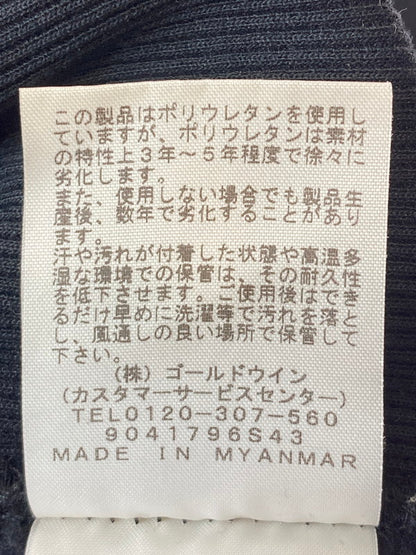 この製品はポリウレタンを使用し
ていますが、ポリウレタンは素材
の特性上3年～5年程度で徐々に
劣化します。
また、使用しない場合でも製品生
産後、数年で劣化することがあり
ます。
汗や汚れが付着した状態や高温多
湿な環境での保管は、その耐久性
を低下させます。ご使用後はでき
るだけ早めに洗濯等で汚れを落と
し、風通しの良い場所で保管して
下さい。
(株) ゴールドウイン
(カスタマーサービスセンター)
TEL0120-307-560
9041796S43
MADE IN MYANMAR